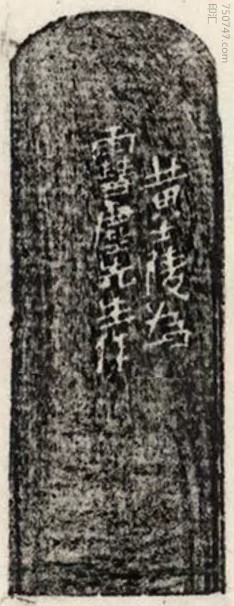 黄士陵為
先生作
印汇
750747.com